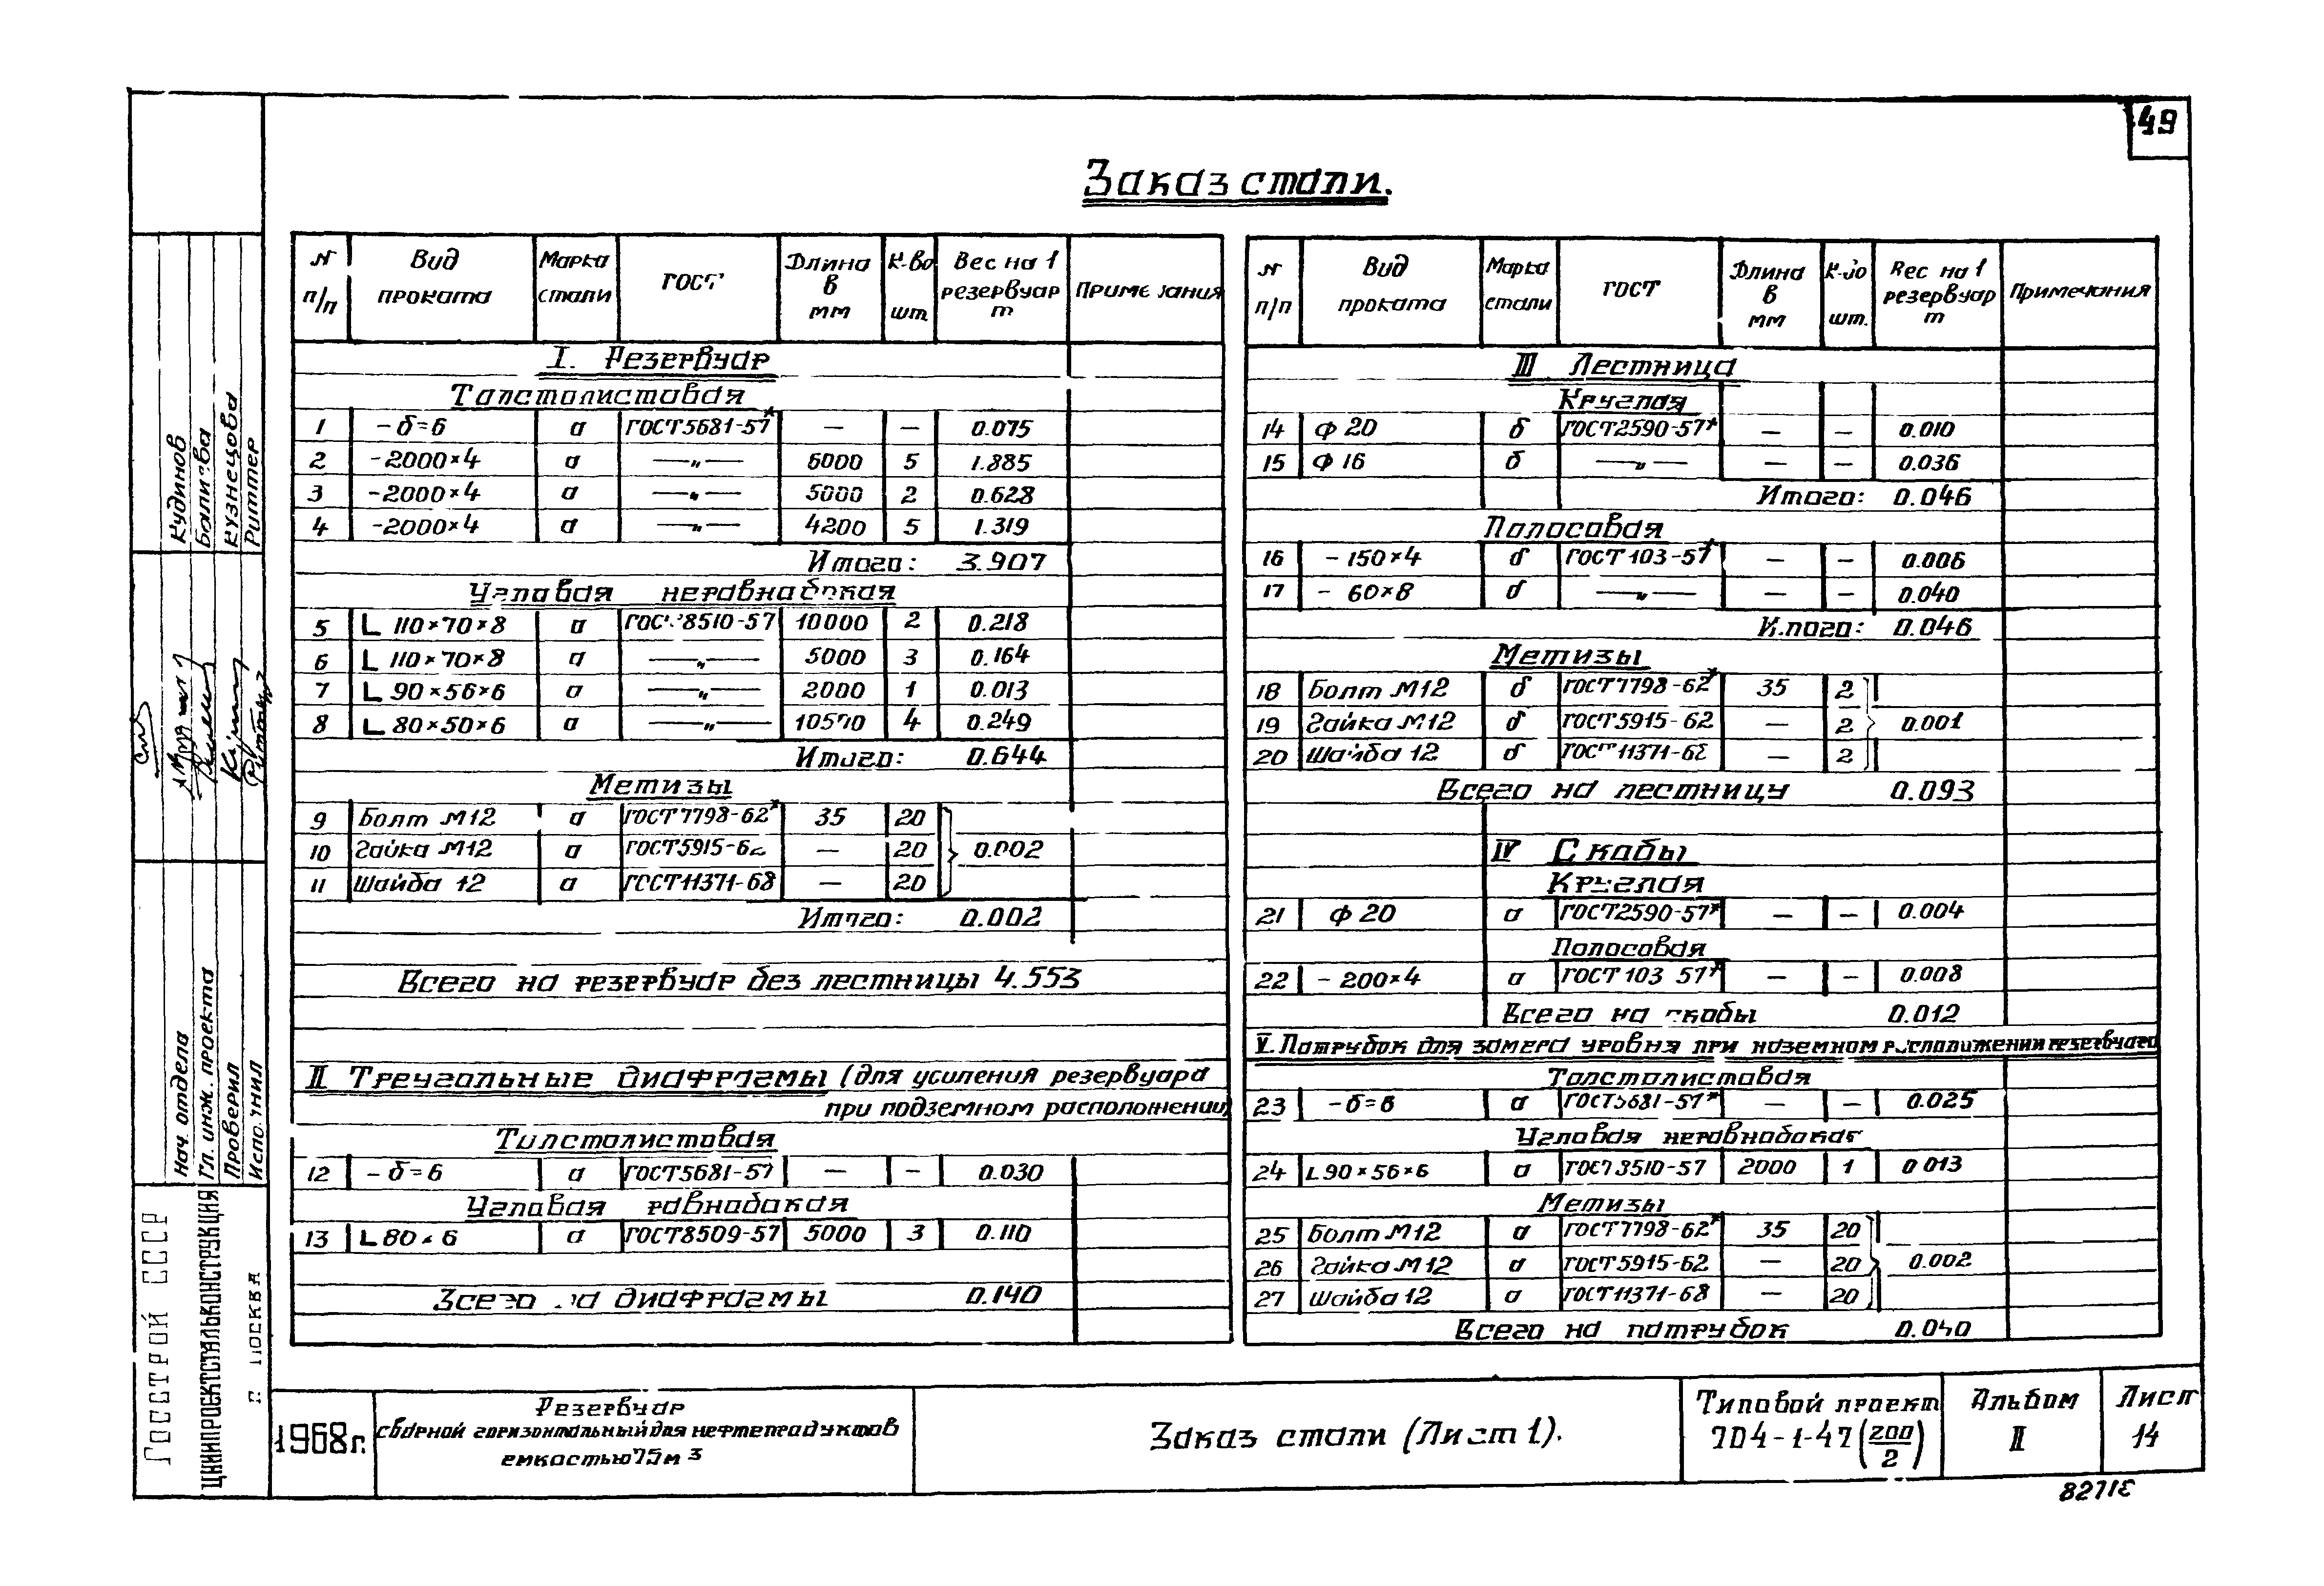 49
Заказ стали.
N п/п Вид проката Марка стали ГОСТ Длина в мм К-во шт. Вес на 1 резервуар т Примечания
I. Резервуар
Толстолистовая
1 - δ=6 а ГОСТ 5681-57* — — 0.075
2 -2000×4 а —„— 6000 5 1.885
3 -2000×4 а —„— 5000 2 0.628
4 -2000×4 а —„— 4200 5 1.319
Итого: 3.907
Угловая неравнобокая
5 L 110×70×8 а ГОСТ 8510-57 10000 2 0.218
6 L 110×70×8 а —„— 5000 3 0.164
7 L 90×56×6 а —„— 2000 1 0.013
8 L 80×50×6 а —„— 10500 4 0.249
Итого: 0.644
Метизы
9 Болт М12 а ГОСТ 7798-62* 35 20
10 Гайка М12 а ГОСТ 5915-62 — 20 0.002
11 Шайба 12 а ГОСТ 11371-68 — 20
Итого: 0.002
Всего на резервуар без лестницы 4.553
II Треугольные диафрагмы (для усиления резервуара
при подземном расположении)
Толстолистовая
12 - δ=6 а ГОСТ 5681-57 — — 0.030
Угловая равнобокая
13 L 80×6 а ГОСТ 8509-57 5000 3 0.110
Всего на диафрагмы 0.140
N п/п Вид проката Марка стали ГОСТ Длина в мм К-во шт. Вес на 1 резервуар т Примечания
III Лестница
Круглая
14 ф 20 б ГОСТ 2590-57* — — 0.010
15 ф 16 б —„— — — 0.036
Итого: 0.046
Полосовая
16 - 150×4 б ГОСТ 103-57* — — 0.006
17 - 60×8 б —„— — — 0.040
Итого: 0.046
Метизы
18 Болт М12 б ГОСТ 7798-62* 35 2
19 Гайка М12 б ГОСТ 5915-62 — 2 0.001
20 Шайба 12 б ГОСТ 11371-68 — 2
Всего на лестницу 0.093
IV Скобы
Круглая
21 ф 20 а ГОСТ 2590-57* — — 0.004
Полосовая
22 - 200×4 а ГОСТ 103 57* — — 0.008
Всего на скобы 0.012
V. Патрубок для замера уровня при наземном расположении резервуара
Толстолистовая
23 - δ=6 а ГОСТ 5681-57* — — 0.025
Угловая неравнобокая
24 L 90×56×6 а ГОСТ 8510-57 2000 1 0 013
Метизы
25 Болт М12 а ГОСТ 7798-62* 35 20
26 Гайка М12 а ГОСТ 5915-62 — 20 0.002
27 Шайба 12 а ГОСТ 11371-68 — 20
Всего на патрубок 0.040
Кудинов
Кузнецова
Риттер
Нач. отдела
Гл. инж. проекта
Проверил
Исполнил
ГОССТРОЙ СССР
ЦНИИПРОЕКТСТАЛЬКОНСТРУКЦИЯ
г. МОСКВА
1968г.
Резервуар
сварной горизонтальный для нефтепродуктов
емкостью 75 м³
Заказ стали (Лист 1).
Типовой проект
704-1-47 (200/2)
Альбом
II
Лист
14